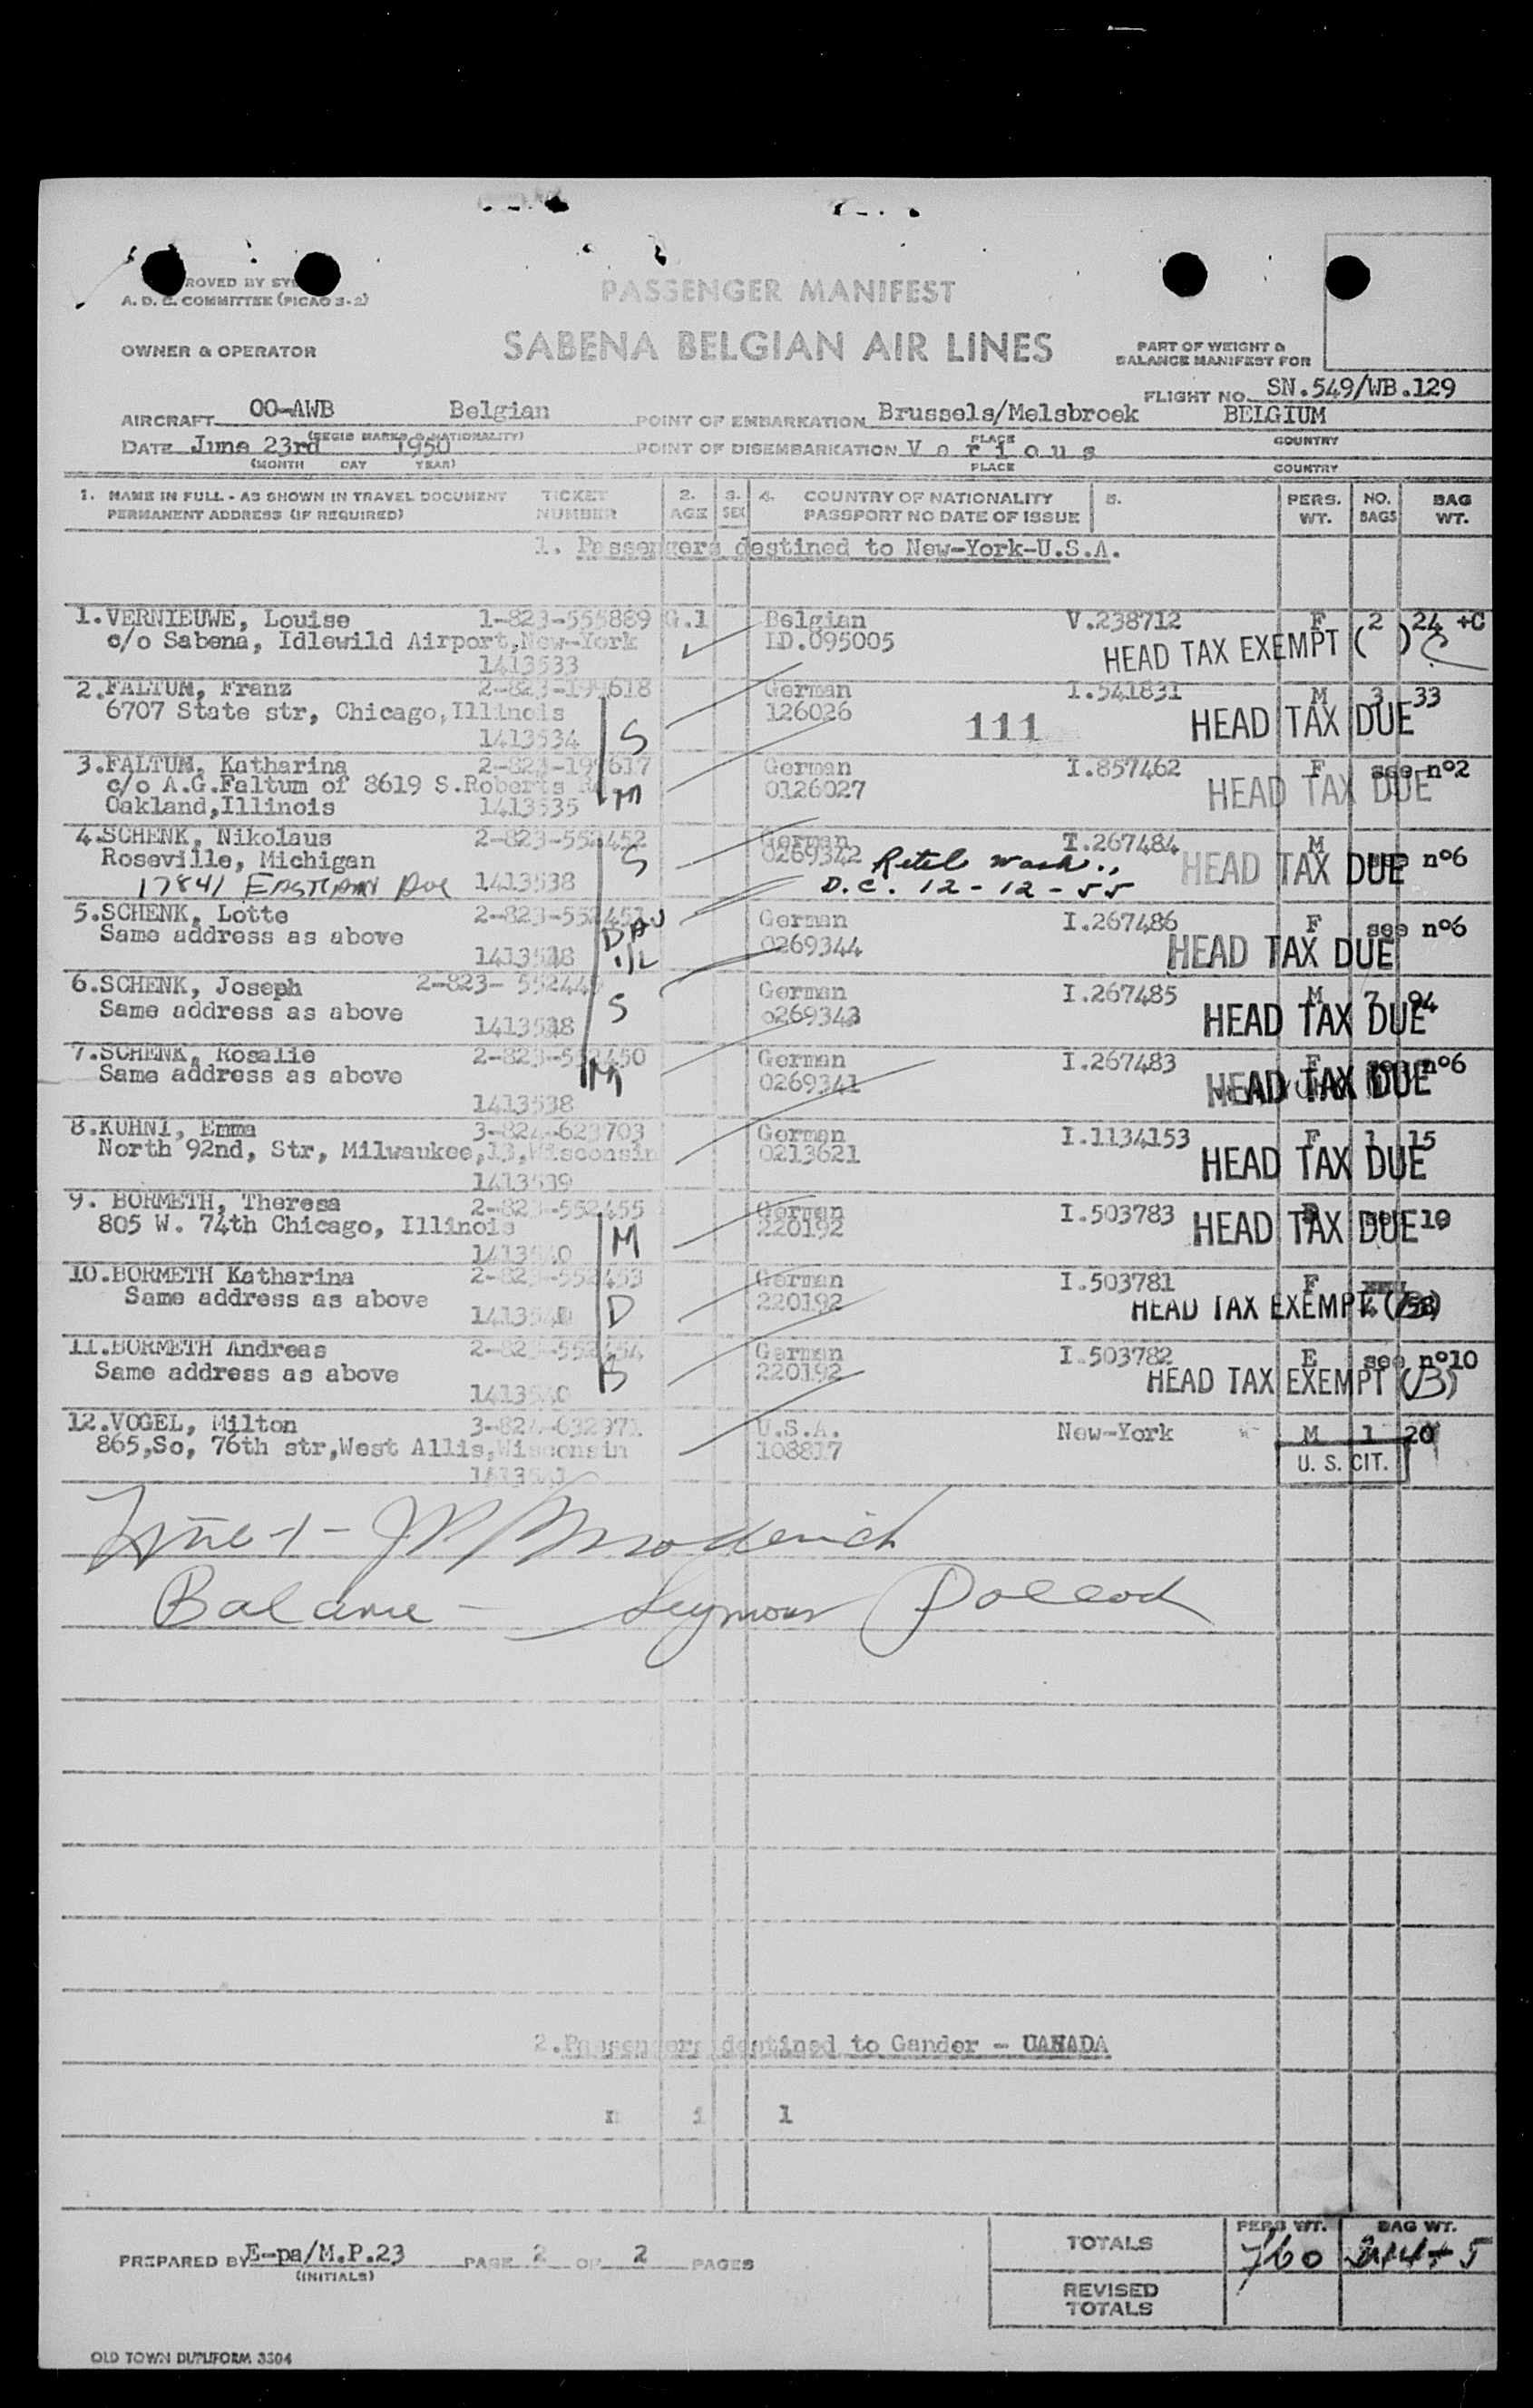 ROVED BY
A. D. C. COMMITTEE (PICAO S-2)
PASSENGER MANIFEST
OWNER & OPERATOR
SABENA BELGIAN AIR LINES
PART OF WEIGHT &
BALANCE MANIFEST FOR
FLIGHT NO. SN.549/WB.129
AIRCRAFT OO-AWB Belgian POINT OF EMBARKATION Brussels/Melsbroek BELGIUM
(REGIS MARKS & NATIONALITY) PLACE COUNTRY
DATE June 23rd 1950 POINT OF DISEMBARKATION V a r i o u s
(MONTH DAY YEAR) PLACE COUNTRY
1. NAME IN FULL - AS SHOWN IN TRAVEL DOCUMENT TICKET 2. 3. 4. COUNTRY OF NATIONALITY 5. PERS. NO. BAG
PERMANENT ADDRESS (IF REQUIRED) NUMBER AGE SEX PASSPORT NO DATE OF ISSUE WT. BAGS WT.
1. Passengers destined to New-York-U.S.A.
1.VERNIEUWE, Louise 1-823-555889 G.1 Belgian V.238712 F 2 24 +C
c/o Sabena, Idlewild Airport,New-York LD.095005 HEAD TAX EXEMPT ( )
1413533
2.FALTUM, Franz 2-823-199618 German I.541831 M 3 33
6707 State str, Chicago,Illinois 126026 111 HEAD TAX DUE
1413534 S
3.FALTUM, Katharina 2-823-199617 German I.857462 F see nº2
c/o A.G.Faltum of 8619 S.Roberts 0126027 HEAD TAX DUE
Oakland,Illinois 1413535 M
4.SCHENK, Nikolaus 2-823-552452 German T.267484 M
Roseville, Michigan S 0269342 Retel Wash., HEAD TAX DUE see nº6
17841 1413538 D.C. 12-12-55
5.SCHENK, Lotte 2-823-552451 German I.267486 F see nº6
Same address as above DAU 0269344 HEAD TAX DUE
1413538
6.SCHENK, Joseph 2-823- German I.267485 M 7 94
Same address as above S 0269343 HEAD TAX DUE
1413538
7.SCHENK, Rosalie 2-823-552450 German I.267483 F see nº6
Same address as above M 0269341 HEAD TAX DUE
1413538
8.KUHNI, Emma 3-824-623703 German I.1134153 F 1 15
North 92nd, Str, Milwaukee,13,Wisconsin 0213621 HEAD TAX DUE
1413539
9. BORMETH, Theresa 2-823-552455 German I.503783 10
805 W. 74th Chicago, Illinois 220192 HEAD TAX DUE
1413540 M
10.BORMETH Katharina 2-823-552453 German I.503781 F
Same address as above 220192 HEAD TAX EXEMPT
D
11.BORMETH Andreas 2-823-552454 German I.503782 E see nº10
Same address as above 220192 HEAD TAX EXEMPT (B)
1413540 B
12.VOGEL, Milton 3-824-632971 U.S.A. New-York M 1 20
865,So, 76th str,West Allis,Wisconsin 108817 U. S. CIT.
1413541
Line 1 -
Balance - Seymour
2.Passengers destined to Gander - CANADA
n i l
TOTALS PERS WT. 760 BAG WT.
PREPARED BY E-pa/M.P.23 PAGE 2 OF 2 PAGES
(INITIALS)
REVISED
TOTALS
OLD TOWN DUPLIFORM 3304